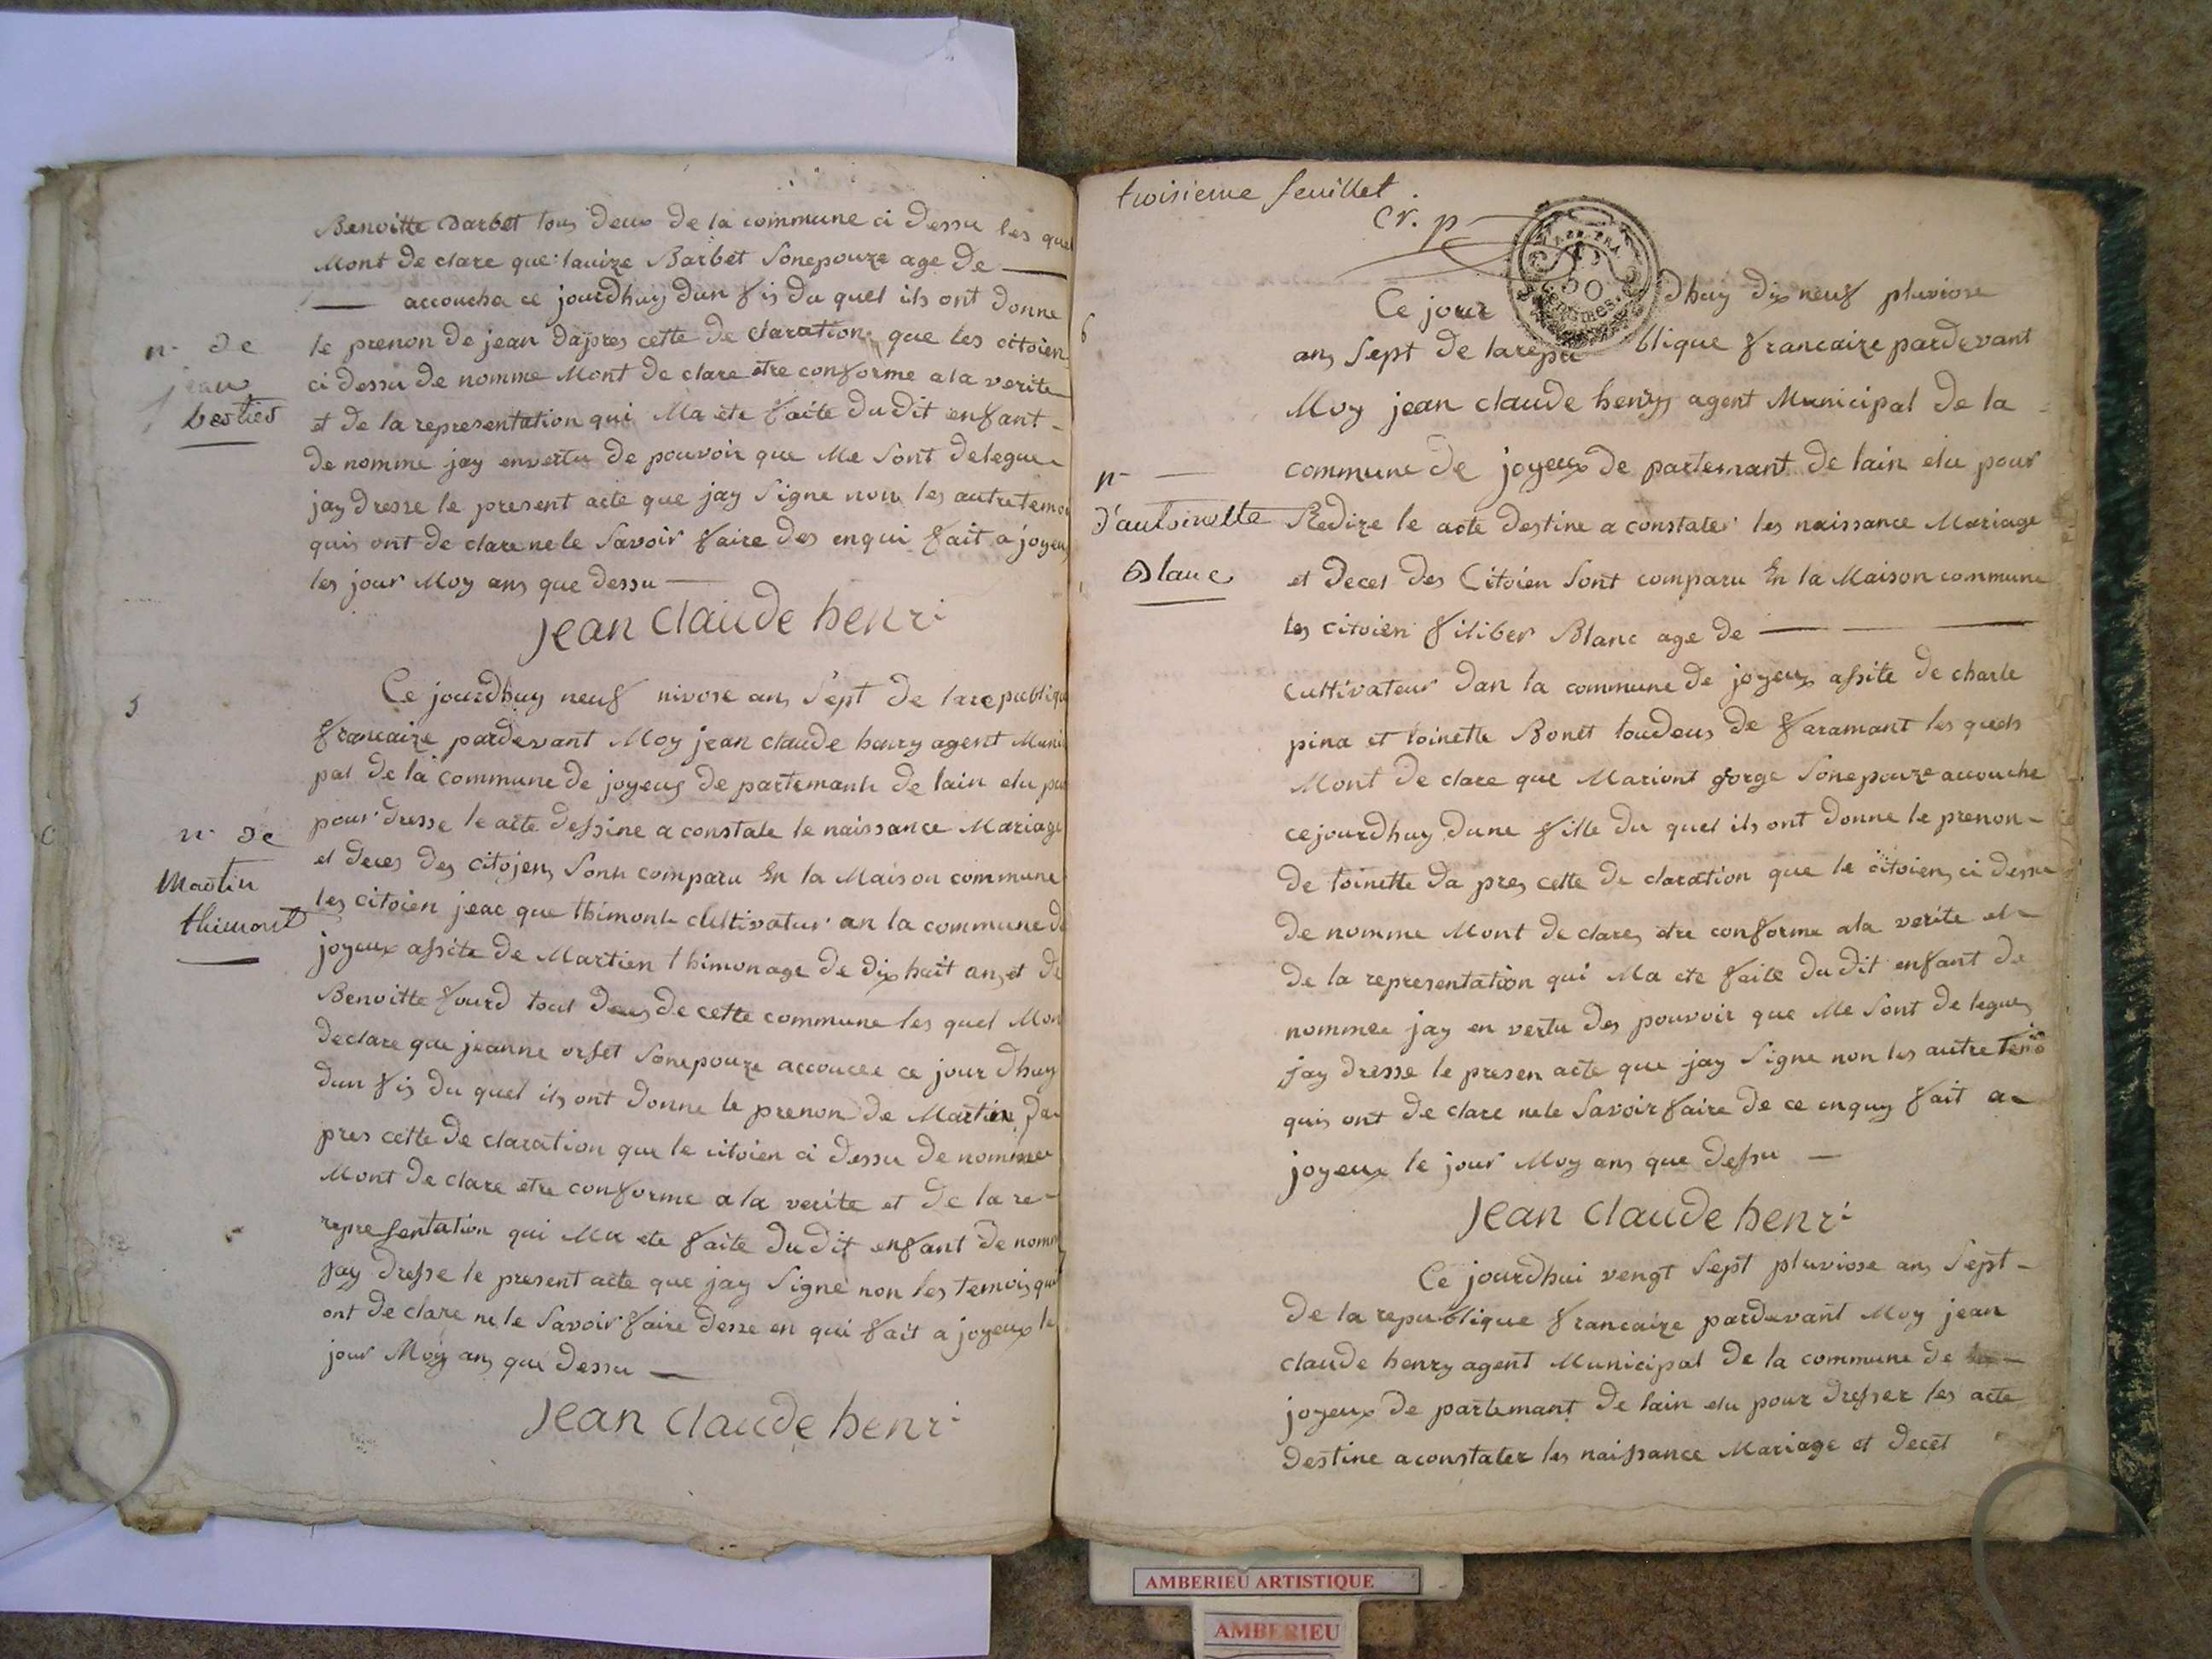 Benoitte Barbet tous deux de la commune ci dessu les quel
Mont de clare que lauize Barbet Sonepouze age de —
— accouche ce jourdhuy dun fis du quel ils ont donne
le prenon de jean dapres cette de claration que les citoien
ci dessu de nomme Mont de clare etre conforme a la verite
et de la representation qui Ma ete faite du dit enfant -
de nomme jay envertu de pouvoir que Me Sont delegue
jay dresse le present acte que jay Signe non les autre temoi
quis ont de clare ne le Savoir faire des enqui fait a joyeux
les jour Moy ans que dessu —
n. de
jean
bertier
jean claude henri
5
Ce jourdhuy neuf nivose ans Sept de larepublique
francaize pardevant Moy jean claude henry agent Muni
pal de la commune de joyeux de partemant de lain elu
pour dresse le acte dessine a constate le naissance Mariage
et deces des citojens Sont comparu En la Maison commune
les citoien jeac que thimont cultivatur an la commune de
joyeux assite de Martien thimon age de dix huit ans et de
Benoitte fourd tout deus de cette commune les quel Mon
declare que jeanne orset Sonepouze accoucee ce jour dhuy
dun fis du quel ils ont donne le prenon de Martin da
pres cette de claration que le citoien ci dessu de nomme
Mont de clare etre conforme a la verite et de la re-
representation qui Ma ete faite du dit enfant de nomm
jay dresse le present acte que jay Signe non les temois qui
ont de clare ne le Savoir faire desse en qui fait a joyeux le
jour Moy ans que dessu —
n. de
Martin
thimont
jean claude henri
troisieme feuillet.
cr. p
50
centimes.
6
Ce jour dhuy dix neuf pluviose
ans Sept de larepu blique francaize pardevant
Moy jean claude henry agent Municipal de la
commune de joyeux de partemant de lain elu pour
Redize le acte destine a constater les naissance Mariage
et deces des Citoien Sont comparu En la Maison commune
les citoien filiber Blanc age de — — —
Cultivateur dan la commune de joyeux assite de charle
pina et toinette Bonet toudeus de faramant les quels
Mont de clare que Mariont gorge Sonepouze accouche
cejourdhuy dune fille du quel ils ont donne le prenon -
de toinette da pres cette de claration que le citoien ci dessu
de nomme Mont de clares etre conforme ala verite et
de la representation qui Ma ete faite du dit enfant de
nommee jay en vertu des pouvoir que Me Sont de legues
jay dresse le presen acte que jay Signe non les autre temo
quis ont de clare nele Savoir faire de ce enquy fait a
joyeux le jour Moy ans que dessu —
n. —
d'antoinette
Blanc
jean claude henri
Ce jourdhui vengt Sept pluviose ans Sept -
de la republique francaize pardevant Moy jean
claude henry agent Municipal de la commune de
joyeux de partemant de lain elu pour dresser les acte
destine a constater les naissance Mariage et decet
AMBERIEU ARTISTIQUE
AMBERIEU